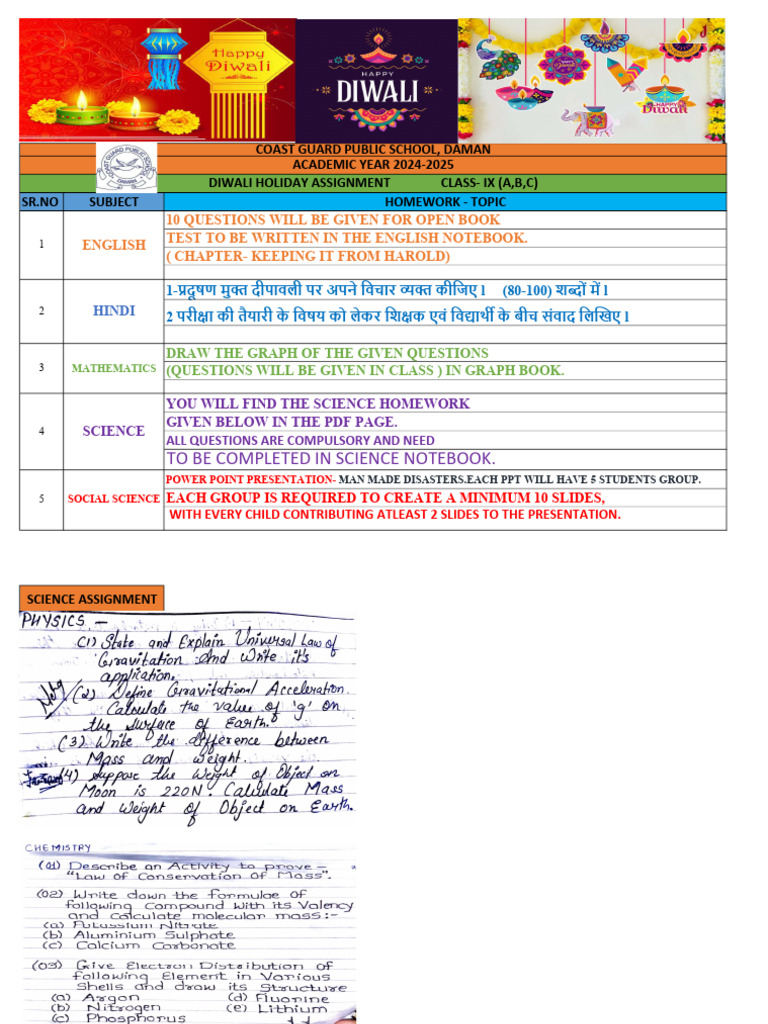 Happy
Diwali
HAPPY
DIWALI
Happy
Diwali
COAST GUARD PUBLIC SCHOOL, DAMAN
ACADEMIC YEAR 2024-2025
DIWALI HOLIDAY ASSIGNMENT CLASS- IX (A,B,C)
SR.NO SUBJECT HOMEWORK - TOPIC
1 ENGLISH
10 QUESTIONS WILL BE GIVEN FOR OPEN BOOK
TEST TO BE WRITTEN IN THE ENGLISH NOTEBOOK.
( CHAPTER- KEEPING IT FROM HAROLD)
2 HINDI
1-प्रदूषण मुक्त दीपावली पर अपने विचार व्यक्त कीजिए l (80-100) शब्दों में l
2 परीक्षा की तैयारी के विषय को लेकर शिक्षक एवं विद्यार्थी के बीच संवाद लिखिए l
3 MATHEMATICS
DRAW THE GRAPH OF THE GIVEN QUESTIONS
(QUESTIONS WILL BE GIVEN IN CLASS ) IN GRAPH BOOK.
4 SCIENCE
YOU WILL FIND THE SCIENCE HOMEWORK
GIVEN BELOW IN THE PDF PAGE.
ALL QUESTIONS ARE COMPULSORY AND NEED
TO BE COMPLETED IN SCIENCE NOTEBOOK.
5 SOCIAL SCIENCE
POWER POINT PRESENTATION- MAN MADE DISASTERS.EACH PPT WILL HAVE 5 STUDENTS GROUP.
EACH GROUP IS REQUIRED TO CREATE A MINIMUM 10 SLIDES,
WITH EVERY CHILD CONTRIBUTING ATLEAST 2 SLIDES TO THE PRESENTATION.
SCIENCE ASSIGNMENT
PHYSICS -
(1) State and Explain Universal Law of
Gravitation and Write it's
application.
(2) Define Gravitational Acceleration.
Calculate the value of 'g' on
the surface of Earth.
(3) Write the difference between
Mass and weight.
(4) Suppose the Weight of Object on
Moon is 220N. Calculate Mass
and Weight of Object on Earth.
CHEMISTRY
(01) Describe an Activity to prove -
"Law of Conservation Of Mass".
(02) Write down the formulae of
following Compound with its Valency
and calculate molecular mass:-
(a) Potassium Nitrate
(b) Aluminium Sulphate
(c) Calcium Carbonate
(03) Give Electron Distribution of
following Element in Various
Shells and draw its Structure
(a) Argon (d) Fluorine
(b) Nitrogen (e) Lithium
(c) Phosphorus